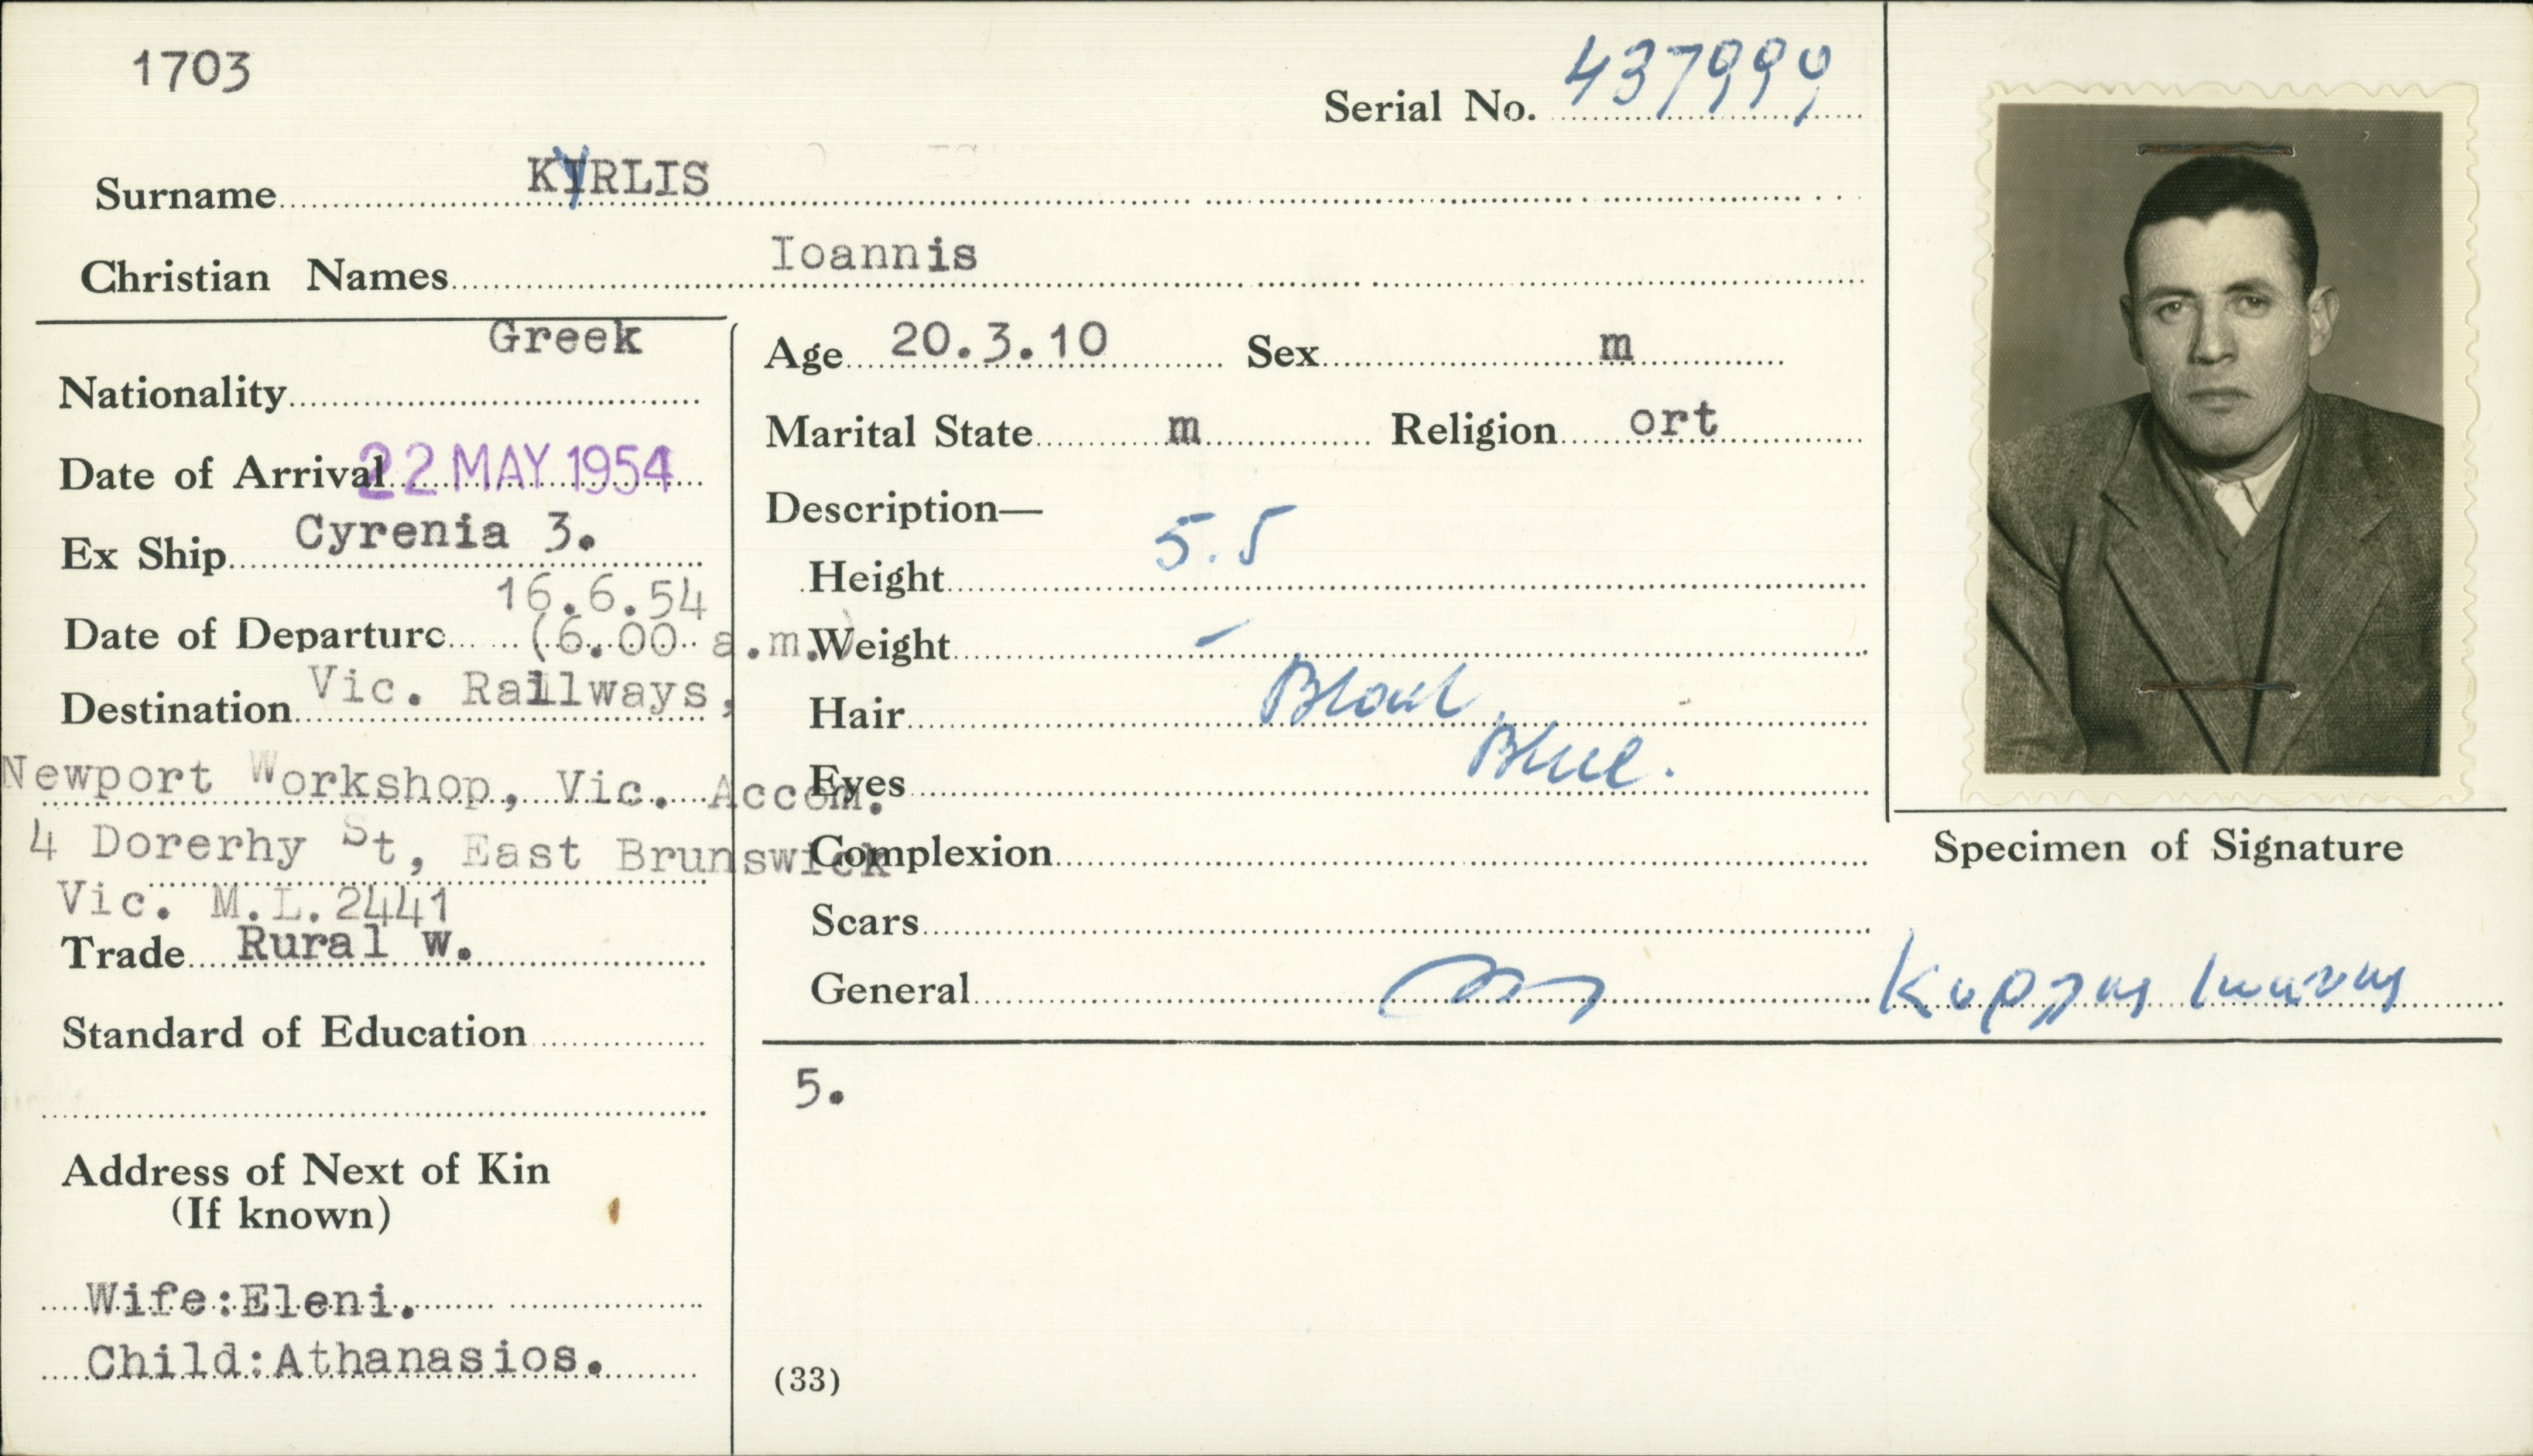 1703
Serial No. 437999
Surname KYRLIS
Christian Names Ioannis
Greek
Nationality
Date of Arrival 22 MAY 1954
Ex Ship Cyrenia 3.
16.6.54
Date of Departure (6.00 a.m.)
Destination Vic. Railways,
Newport Workshop, Vic. Accom.
4 Dorerhy St, East Brunswick
Vic. M.L.2441
Trade Rural w.
Standard of Education
Address of Next of Kin
(If known)
Wife:Eleni.
Child:Athanasios.
Age 20.3.10 Sex m
Marital State m Religion ort
Description—
Height 5.5
Weight –
Hair
Eyes Blue.
Complexion
Scars
General
5.
(33)
Specimen of Signature